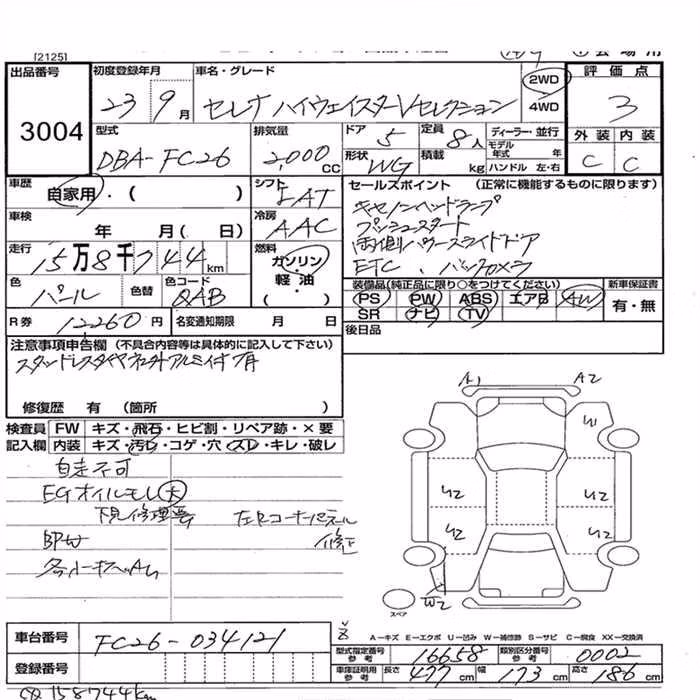 [2125]
出品番号 初度登録年月 車名・グレード 2WD 4WD 評価点
3004
23 9月 セレナ ハイウェイスターVセレクション 3
型式 排気量 ドア 定員 ディーラー・並行 外装 内装
DBA-FC26 2,000CC 5 8人 モデル年式 年
形状 WG 積載 kg ハンドル 左・右 C C
車歴 自家用・( ) シフト FAT セールスポイント (正常に機能するものに限ります)
キセノンヘッドランプ
車検 年 月( 日) 冷房 AAC プッシュスタート
両側パワースライドドア
走行 15万8千744km 燃料 ガソリン・軽油・( ) ETC、バックカメラ
色 パール 色替 色コード QAB 装備品(純正品に限り○をつけてください) 新車保証書
PS PW ABS エアB AW 有・無
SR ナビ TV
R券 12260円 名変通知期限 月 日 後日品
注意事項申告欄 (不具合内容等は具体的に記入して下さい)
スタッドレスタイヤ
修復歴 有 (箇所 )
A1 A2
検査員記入欄 FW キズ・飛石・ヒビ割・リペア跡・×要
内装 キズ・汚レ・コゲ・穴・スレ・キレ・破レ
U1
自走不可
EGオイルモレ大
下見修理要 左Rコーナーパネル
修正
U2 U2
U2 U2
W2
スペア
A-キズ E-エクボ U-凹み W-補修跡 S-サビ C-腐食 XX-交換済
車台番号 FC26-034121
型式指定番号 参考 16658 類別区分番号 参考 0002
登録番号 車庫証明用 参考 長さ 477cm 幅 173cm 高さ 186cm
158744km